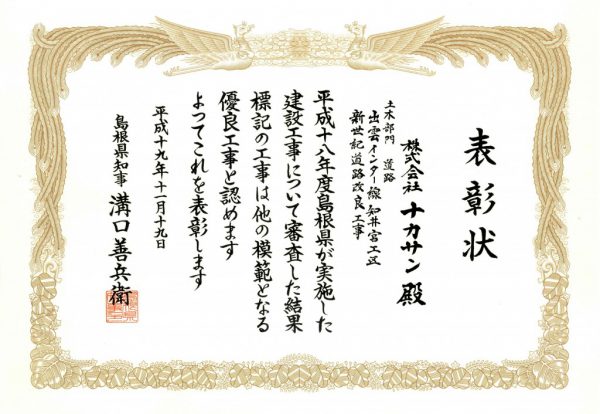 表彰状
株式会社 ナカサン 殿
土木部門 道路
出雲インター線 知井宮工区
新世紀道路改良工事
平成十八年度島根県が実施した
建設工事について審査した結果
標記の工事は他の模範となる
優良工事と認めます
よってこれを表彰します
平成十九年十一月十九日
島根県知事 溝口善兵衛